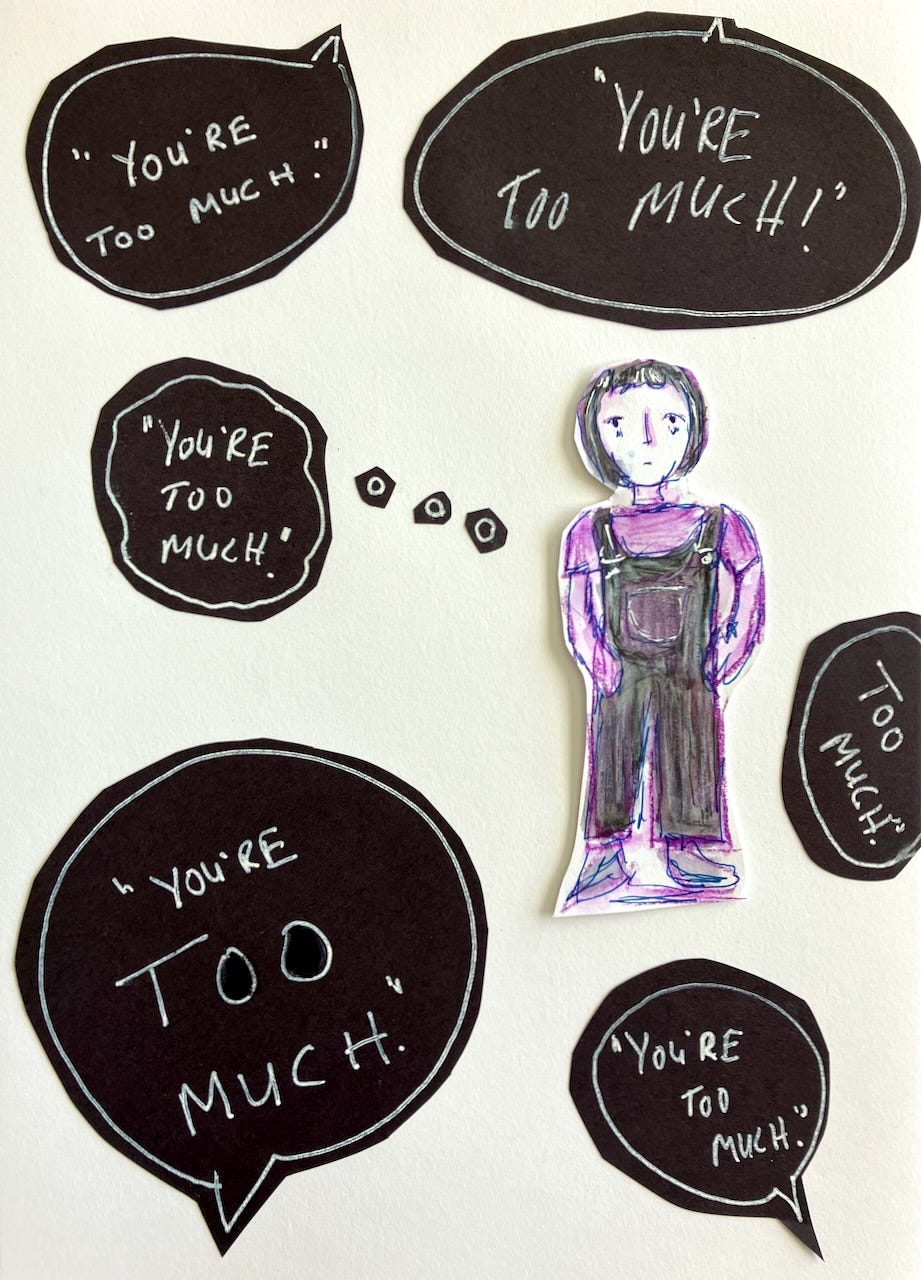 "YOU'RE
TOO MUCH."
"YOU'RE
TOO MUCH!"
"YOU'RE
TOO
MUCH."
TOO
MUCH."
"YOU'RE
TOO
MUCH."
"YOU'RE
TOO
MUCH."